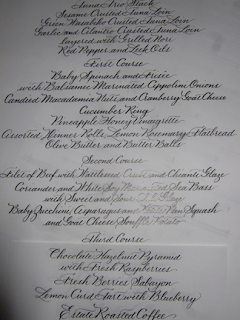 Tuna Trio Stack
Sesame Crusted Tuna Loin
Green Crusted Tuna Loin
Garlic and Cilantro Crusted Tuna Loin
layered with Grilled
Red Pepper and Leek Oils
First Course
Baby Spinach and Frisée
with Balsamic Marinated Cippolini Onions
Candied Macadamia Nuts and Cranberry Goat Cheese
Cucumber Ring
Pineapple Honey Vinaigrette
Assorted Dinner Rolls Lemon Rosemary Flatbread
Olive Butter and Butter Balls
Second Course
Filet of Beef with Cress and Chianti Glaze
Coriander and White Sea Bass
with Sweet and Sour Glaze
Baby Zucchini, Asparagus and Squash
and Goat Cheese Souffle Potato
Third Course
Chocolate Hazelnut Pyramid
with Fresh Raspberries
Fresh Berries Sabayon
Lemon Curd Tart with Blueberry
Estate Roasted Coffee